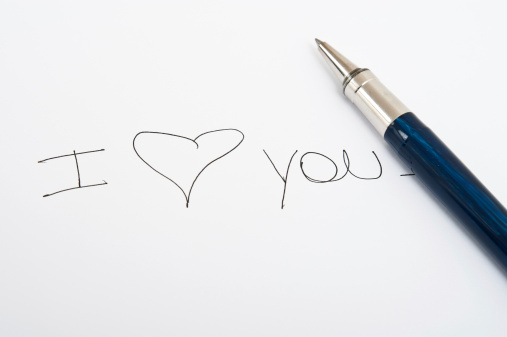 I ♥ you.